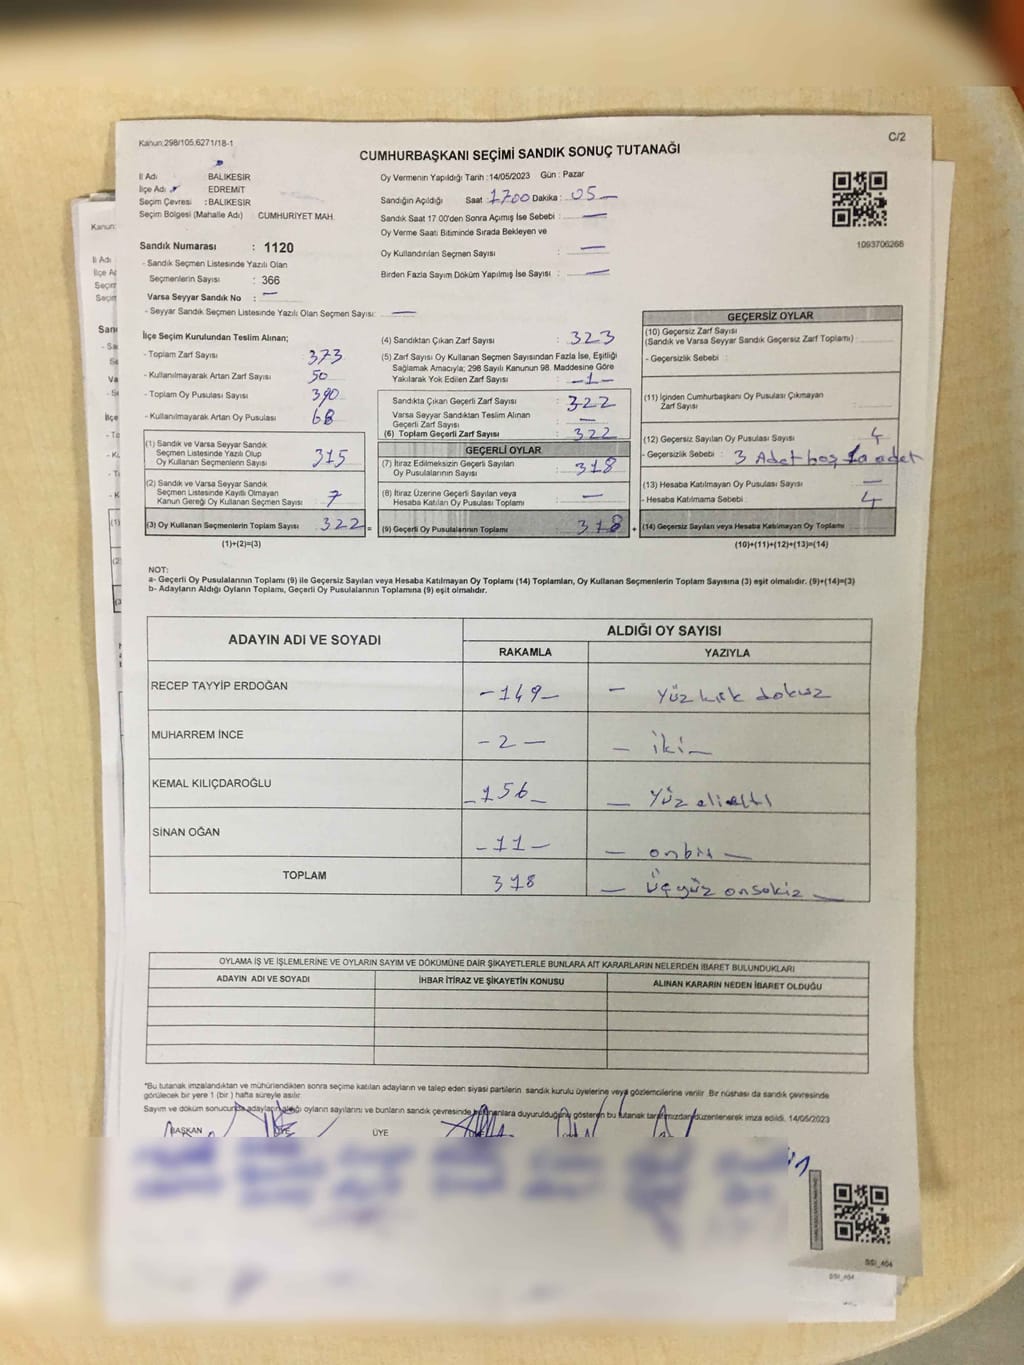 Kanun:298/105.6271/18-1
C/2
CUMHURBAŞKANI SEÇİMİ SANDIK SONUÇ TUTANAĞI
İl Adı BALIKESİR
İlçe Adı EDREMİT
Seçim Çevresi :BALIKESİR
Seçim Bölgesi (Mahalle Adı) : CUMHURİYET MAH.
Sandık Numarası : 1120
- Sandık Seçmen Listesinde Yazılı Olan
Seçmenlerin Sayısı : 366
Varsa Seyyar Sandık No : —
- Seyyar Sandık Seçmen Listesinde Yazılı Olan Seçmen Sayısı: —
Oy Vermenin Yapıldığı Tarih :14/05/2023 Gün : Pazar
Sandığın Açıldığı Saat : 1700 Dakika : 05 —
Sandık Saat 17 00'den Sonra Açımış İse Sebebi : —
Oy Verme Saati Bitiminde Sırada Bekleyen ve
Oy Kullandırılan Seçmen Sayısı : —
Birden Fazla Sayım Döküm Yapılmış İse Sayısı : —
1093706266
İlçe Seçim Kurulundan Teslim Alınan;
- Toplam Zarf Sayısı : 373
- Kullanılmayarak Artan Zarf Sayısı : 50
- Toplam Oy Pusulası Sayısı : 390
- Kullanılmayarak Artan Oy Pusulası : 68
(1) Sandık ve Varsa Seyyar Sandık
Seçmen Listesinde Yazılı Olup
Oy Kullanan Seçmenlerin Sayısı : 315
(2) Sandık ve Varsa Seyyar Sandık
Seçmen Listesinde Kayıtlı Olmayan
Kanun Gereği Oy Kullanan Seçmen Sayısı : 7
(3) Oy Kullanan Seçmenlerin Toplam Sayısı : 322 =
(1)+(2)=(3)
(4) Sandıktan Çıkan Zarf Sayısı : 323
(5) Zarf Sayısı Oy Kullanan Seçmen Sayısından Fazla İse, Eşitliği
Sağlamak Amacıyla; 298 Sayılı Kanunun 98. Maddesine Göre
Yakılarak Yok Edilen Zarf Sayısı : -1-
Sandıkta Çıkan Geçerli Zarf Sayısı : 322
Varsa Seyyar Sandıktan Teslim Alınan
Geçerli Zarf Sayısı : —
(6) Toplam Geçerli Zarf Sayısı : 322
GEÇERLİ OYLAR
(7) İtiraz Edilmeksizin Geçerli Sayılan
Oy Pusulalarının Sayısı : 318
(8) İtiraz Üzerine Geçerli Sayılan veya
Hesaba Katılan Oy Pusulası Toplamı : —
(9) Geçerli Oy Pusulalarının Toplamı : 318 +
GEÇERSİZ OYLAR
(10) Geçersiz Zarf Sayısı
(Sandık ve Varsa Seyyar Sandık Geçersiz Zarf Toplamı) :
- Geçersizlik Sebebi :
(11) İçinden Cumhurbaşkanı Oy Pusulası Çıkmayan
Zarf Sayısı :
(12) Geçersiz Sayılan Oy Pusulası Sayısı : 4
- Geçersizlik Sebebi : 3 Adet boş adet
(13) Hesaba Katılmayan Oy Pusulası Sayısı : —
- Hesaba Katılmama Sebebi : 4
(14) Geçersiz Sayılan veya Hesaba Katılmayan Oy Toplamı :
(10)+(11)+(12)+(13)=(14)
NOT:
a- Geçerli Oy Pusulalarının Toplamı (9) ile Geçersiz Sayılan veya Hesaba Katılmayan Oy Toplamı (14) Toplamları, Oy Kullanan Seçmenlerin Toplam Sayısına (3) eşit olmalıdır. (9)+(14)=(3)
b- Adayların Aldığı Oyların Toplamı, Geçerli Oy Pusulalarının Toplamına (9) eşit olmalıdır.
ADAYIN ADI VE SOYADI
ALDIĞI OY SAYISI
RAKAMLA YAZIYLA
RECEP TAYYİP ERDOĞAN -149- - Yüz kırk dokuz
MUHARREM İNCE -2- - iki -
KEMAL KILIÇDAROĞLU -156- - Yüz elialtı
SİNAN OĞAN -11- - onbir -
TOPLAM 318 - Üçyüz onsekiz -
OYLAMA İŞ VE İŞLEMLERİNE VE OYLARIN SAYIM VE DÖKÜMÜNE DAİR ŞİKAYETLERLE BUNLARA AİT KARARLARIN NELERDEN İBARET BULUNDUKLARI
ADAYIN ADI VE SOYADI İHBAR İTİRAZ VE ŞİKAYETİN KONUSU ALINAN KARARIN NEDEN İBARET OLDUĞU
*Bu tutanak imzalandıktan ve mühürlendikten sonra seçime katılan adayların ve talep eden siyasi partilerin sandık kurulu üyelerine veya gözlemcilerine verilir. Bir nüshası da sandık çevresinde
görülecek bir yere 1 (bir) hafta süreyle asılır.
Sayım ve döküm sonucunda adayların aldığı oyların sayılarını ve bunların sandık çevresinde bulunanlara duyurulduğunu gösteren bu tutanak tarafımızdan düzenlenerek imza edildi. 14/05/2023
BAŞKAN ÜYE ÜYE
SSI_404
SSI_404